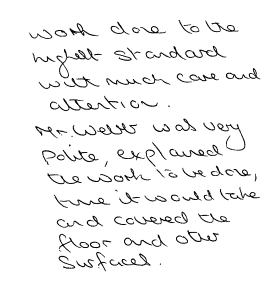 work done to the
highest standard
with much care and
attention.
Mr. Webb was very
polite, explained
the work to be done,
time it would take
and covered the
floor and other
surfaces.